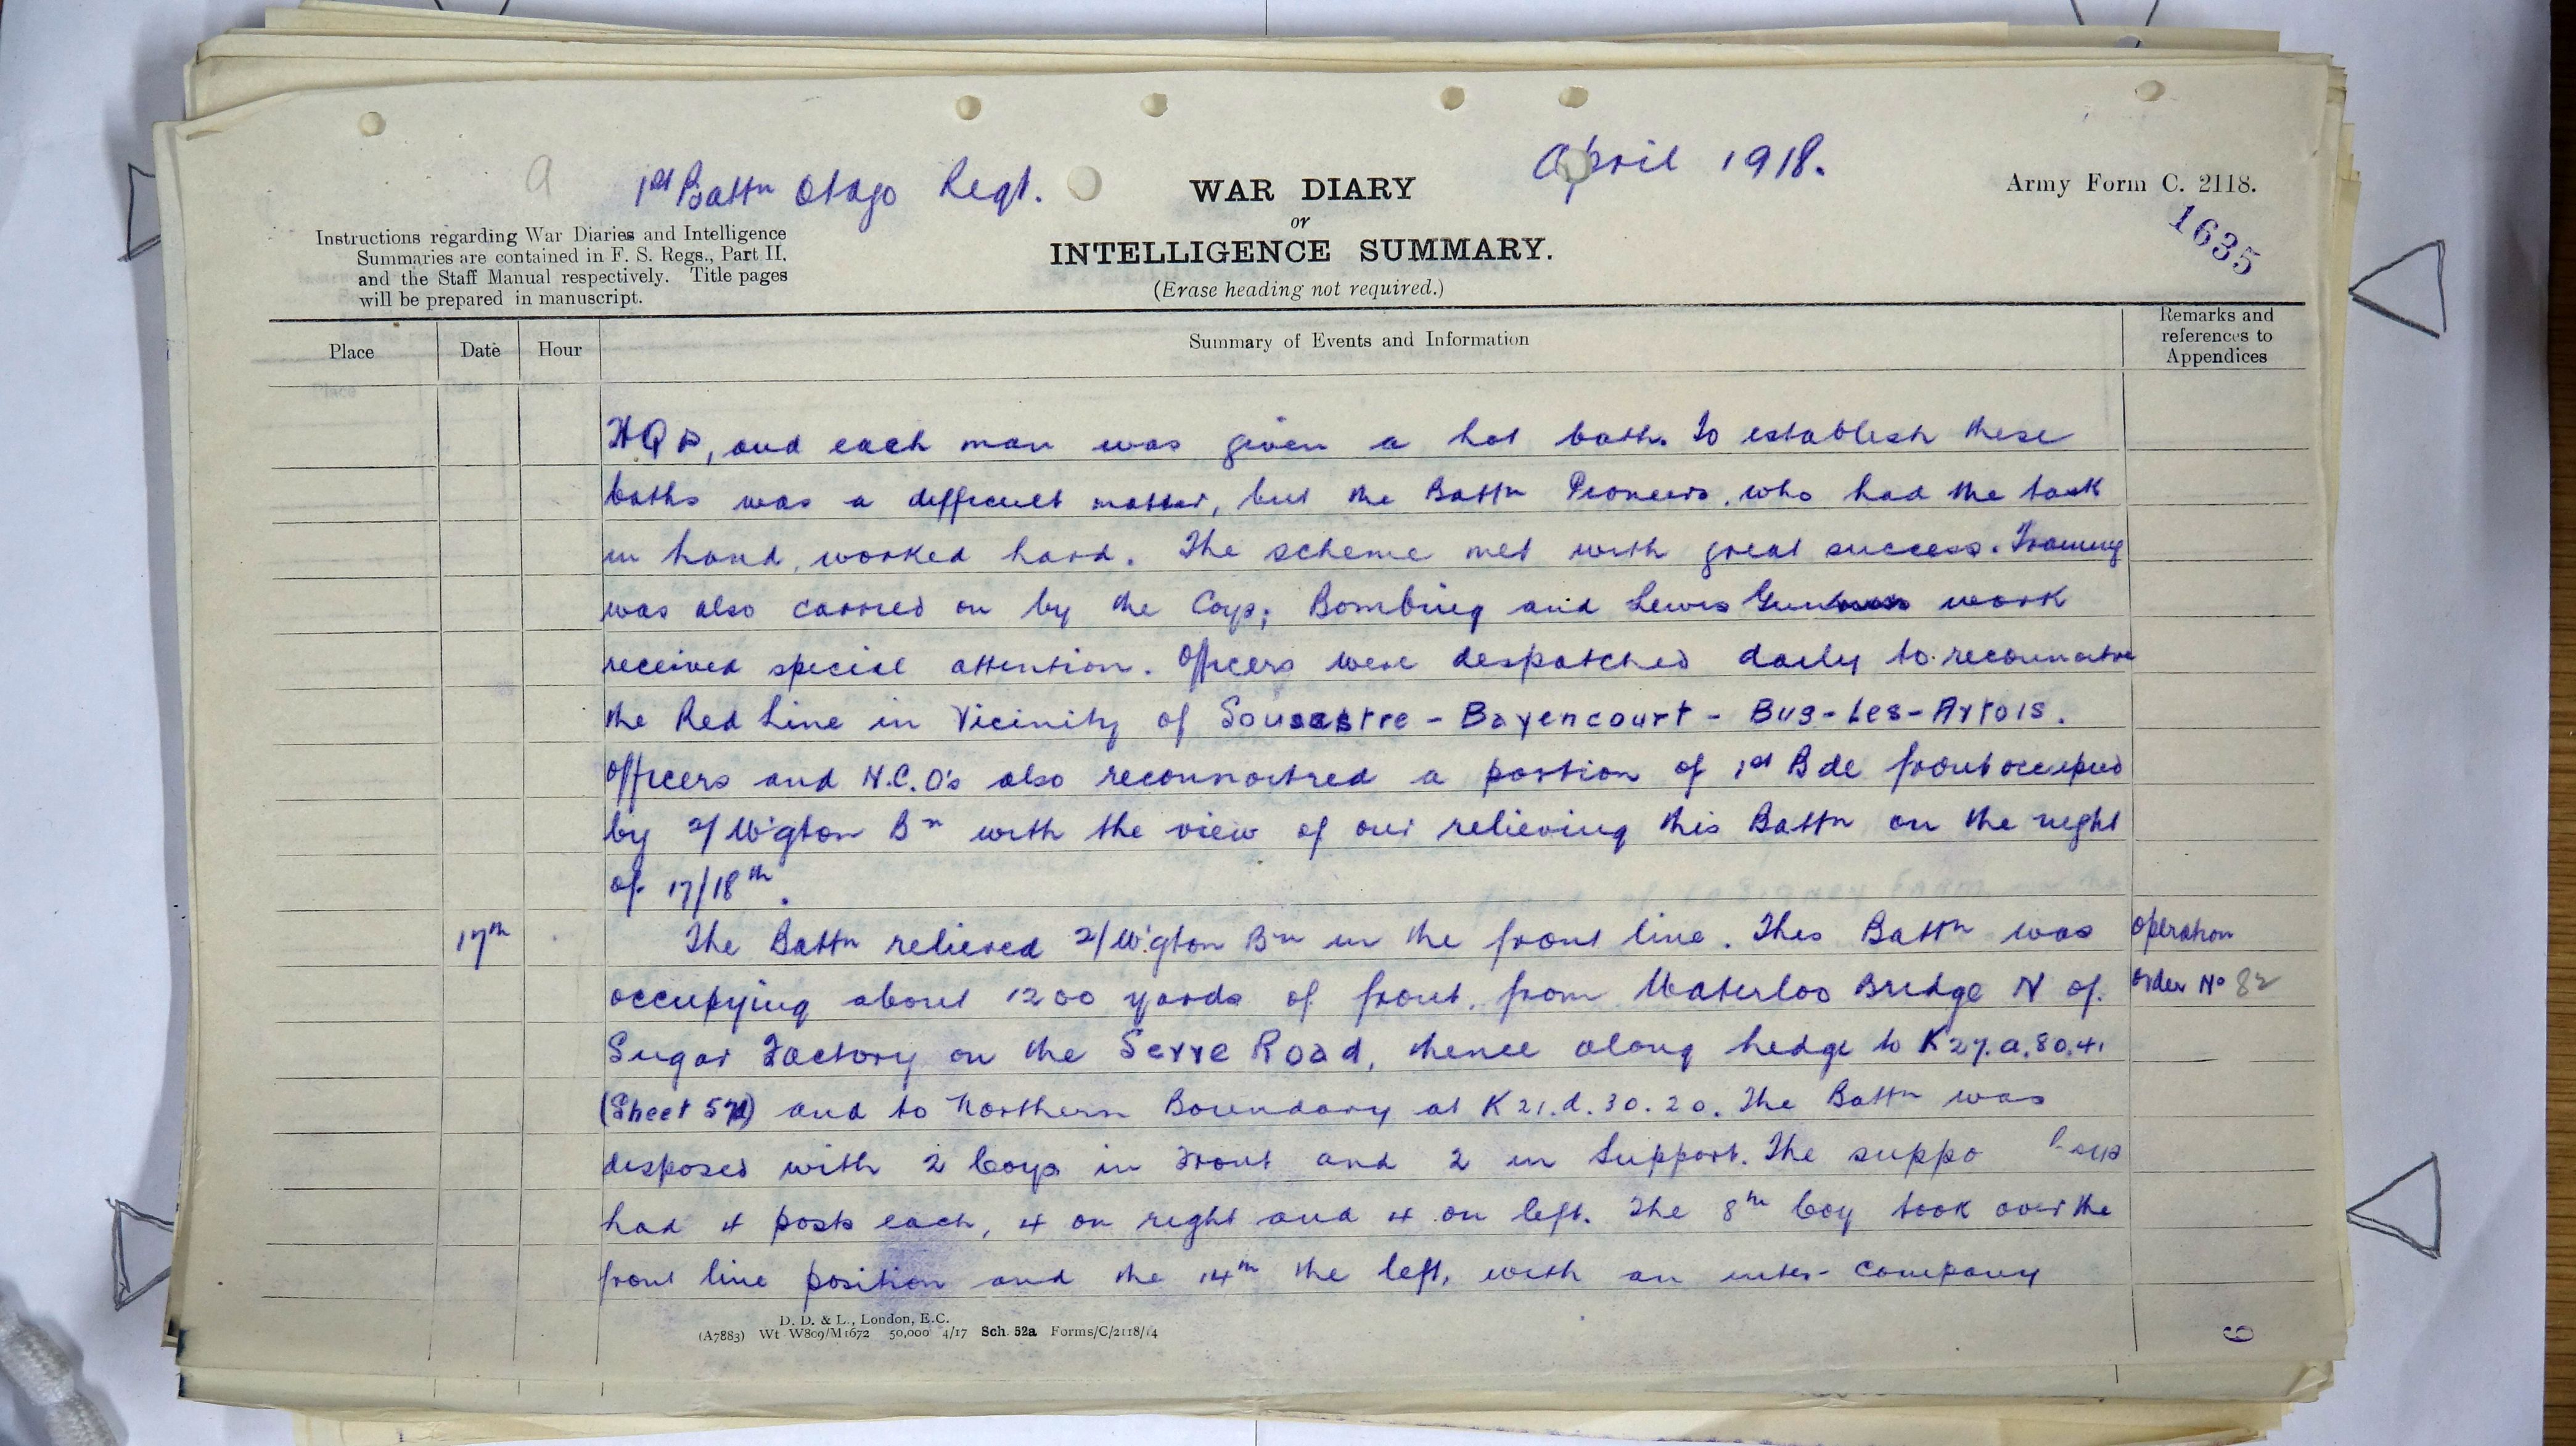 a
1st Battn Otago Regt.
April 1918.
WAR DIARY
or
INTELLIGENCE SUMMARY.
(Erase heading not required.)
Army Form C. 2118.
1635
Instructions regarding War Diaries and Intelligence
Summaries are contained in F. S. Regs., Part II.
and the Staff Manual respectively. Title pages
will be prepared in manuscript.
Place Date Hour Summary of Events and Information Remarks and references to Appendices
HQrs, and each man was given a hot bath. To establish these
baths was a difficult matter, but the Battn Pioneers, who had the task
in hand, worked hard. The scheme met with great success. Training
was also carried on by the Coys; Bombing and Lewis Gun work
received special attention. Officers were despatched daily to reconnoitre
the Red Line in Vicinity of Sousastre - Bayencourt - Bus-Les-Artois.
Officers and N.C.O's also reconnoitred a portion of 1st Bde front occupied
by 2/W'gton Bn with the view of our relieving this Battn on the night
of 17/18th.
17th The Battn relieved 2/W'gton Bn in the front line. This Battn was Operation
occupying about 1200 yards of front, from Waterloo Bridge N of. Order No 82
Sugar Factory on the Serre Road, thence along hedge to K27.a.80.41
(Sheet 57d) and to Northern Boundary at K21.d.30.20. The Battn was
disposed with 2 Coys in Front and 2 in Support. The suppo Coys
had 4 posts each, 4 on right and 4 on left. The 8th Coy took over the
front line position and the 14th the left, with an inter-company
D. D. & L., London, E.C.
(A7883) Wt W809/M1672 50,000 4/17 Sch. 52a Forms/C/2118/14
6